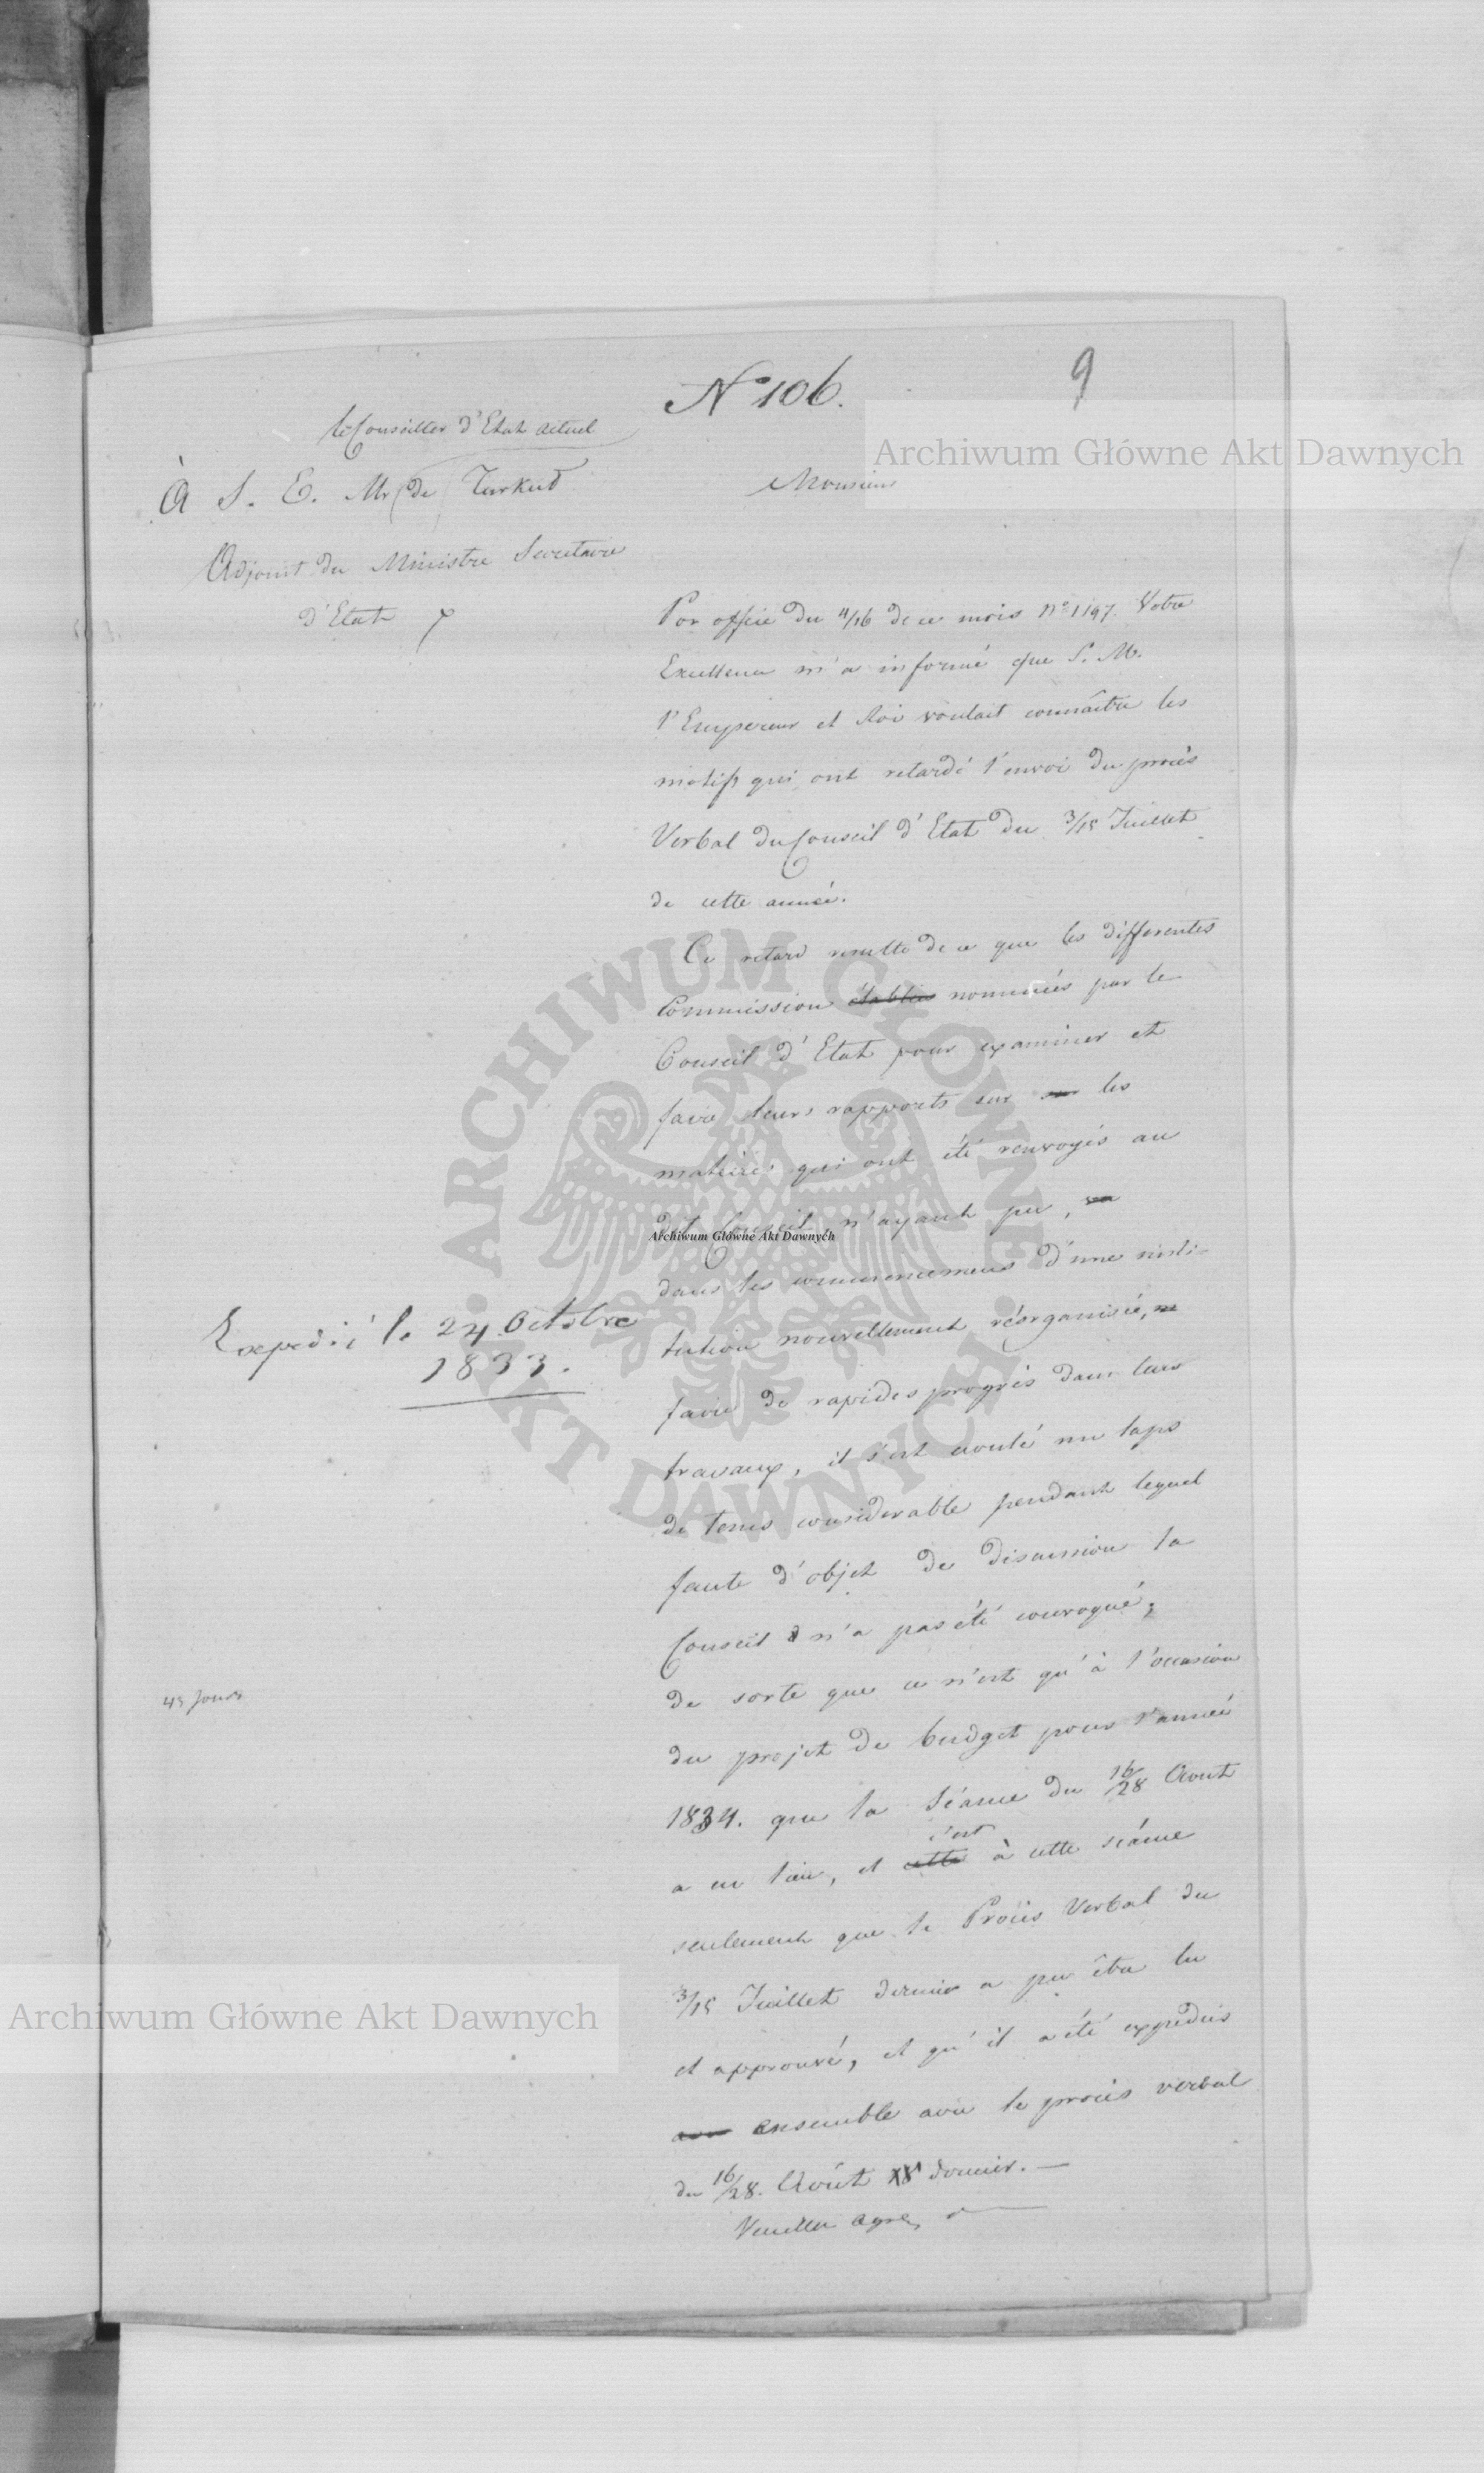 9
N° 106.
le Conseiller d'Etat actuel
À S. E. Mr de Turkuł
Adjoint du Ministre Secretaire
d'Etat
Monsieur
Par office du 4/16 de ce mois N° 1197. Votre
Excellence m'a informé que S. M.
l'Empereur et Roi voulait connaître les
motifs qui ont retardé l'envoi du procès
Verbal du Conseil d'Etat du 3/15 Juillet
de cette année.
Ce retard resulte de ce que les differentes
Commission établies nommées par le
Conseil d'Etat pour examiner et
faire leurs rapports sur les
matières qui ont été renvoyés au
dit Conseil n'ayant pu,
dans les commencemens d'une insti-
tution nouvellement réorganisée,
faire de rapides progrès dans leurs
travaux, il s'est ecoulé un laps
de tems considerable pendant lequel
faute d'objet de discussion le
Conseil n'a pas été convoqué,
de sorte que ce n'est qu'à l'occasion
du projet de budget pour l'année
1834. que la Séance du 16/28 Aout
a eu lieu, et cette c'est à cette séance
seulement que le Procès Verbal du
3/15 Juillet dernier a pu être lu
et approuvé, et qu'il a été expediés
ensemble avec le procès verbal
du 16/28. Août dernier. —
Veuillez agréer
Expedié le 24 Octobre
1833.
45 jours
Archiwum Główne Akt Dawnych
ARCHIWUM GŁÓWNE
AKT DAWNYCH
Archiwum Główne Akt Dawnych
Archiwum Główne Akt Dawnych